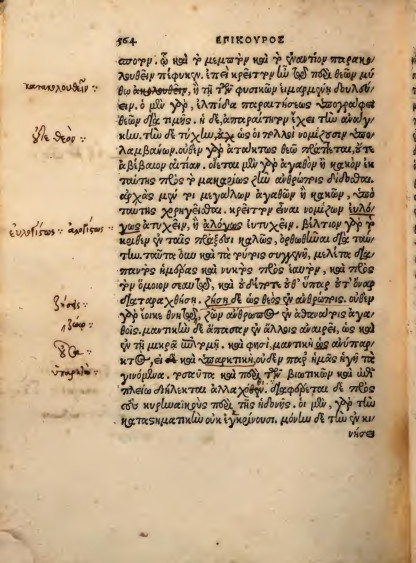 564 ΕΠΙΚΟΥΡΟΣ
αποτον. ᾧ καὶ τὸ μεμπτὸν καὶ τὸ ἐναντίον παρακο
λουθεῖν πέφυκεν. ἐπεὶ κρεῖττον ἦν τῷ περὶ θεῶν μύ
θῳ ἀκολουθεῖν, ἢ τῇ τῶν φυσικῶν εἱμαρμένῃ δουλεύ
ειν. ὁ μὲν γὰρ, ἐλπίδα παραιτήσεως ὑπογράφει
θεῶν διὰ τιμῆς. ἡ δὲ, ἀπαραίτητον ἔχει τὴν ἀνάγ
κην. τὴν δὲ τύχην, οὐχ ὡς οἱ πολλοὶ νομίζουσιν ὑπο
λαμβάνων. οὐθὲν γὰρ ἀτάκτως θεῷ πράττεται, οὔτε
ἀβέβαιον αἰτίαν. οἴεται μὲν γὰρ ἀγαθὸν ἢ κακὸν ἐκ
ταύτης πρὸς τὸ μακαρίως ζῆν ἀνθρώποις δίδοσθαι.
ἀρχὰς μέν τοι μεγάλων ἀγαθῶν ἢ κακῶν, ὑπὸ
ταύτης χορηγεῖσθαι. κρεῖττον εἶναι νομίζων εὐλό
γως ἀτυχεῖν, ἢ ἀλόγως εὐτυχεῖν. βέλτιον γὰρ τὸ
κριθὲν ἐν ταῖς πράξεσι καλῶς, ὀρθωθῆναι διὰ ταύ
την. ταῦτα οὖν καὶ τὰ τούτοις συγγενῆ, μελέτα διὰ
παντὸς ἡμέρας καὶ νυκτὸς πρὸς ἑαυτὸν, καὶ πρὸς
τὸν ὅμοιον σεαυτῷ, καὶ οὐδέποτε οὔθ' ὕπαρ οὔτ' ὄναρ
διαταραχθήσῃ. ζήσῃ δὲ ὡς θεὸς ἐν ἀνθρώποις. οὐθὲν
γὰρ ἔοικε θνητῷ ζῴῳ, ζῶν ἄνθρωπος ἐν ἀθανάτοις ἀγα
θοῖς. μαντικὴν δὲ ἅπασαν ἐν ἄλλοις ἀναιρεῖ, ὡς καὶ
ἐν τῇ μικρᾷ ἐπιτομῇ. καὶ φησὶ, μαντικὴ ὡς ἀνύπαρ
κτος, εἰ δὲ καὶ ὑπαρκτικὴ, οὐδὲν παρ' ἡμᾶς ἡγῆ τὰ
γινόμενα. τοσαῦτα καὶ περὶ τῶν βιωτικῶν καὶ
πλείω διείλεκται ἀλλαχόθι. διαφέρεται δὲ πρὸς
τοὺς κυρηναϊκοὺς περὶ τῆς ἡδονῆς. οἱ μὲν, γὰρ τὴν
καταστηματικὴν οὐκ ἐγκρίνουσι. μόνην δὲ τὴν ἐν κι
νήσει
κατακολουθεῖν
ζήσῃς